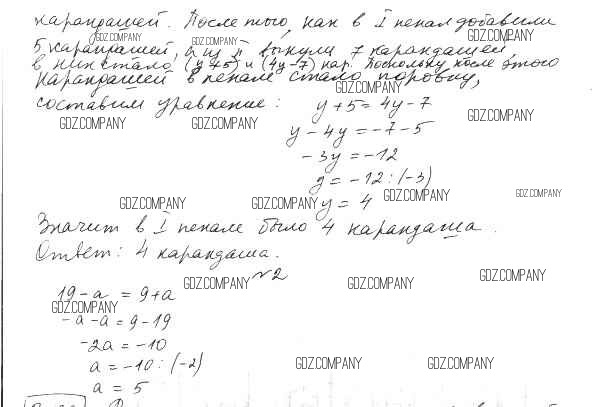 карандашей. После того, как в I пенал добавили
GDZ.COMPANY GDZ.COMPANY GDZ.COMPANY
5 карандашей, а из II вынули 7 карандашей,
в них стало (y+5) и (4y-7) кар. Поскольку после этого
карандашей в пенале стало поровну,
GDZ.COMPANY
составим уравнение: y+5=4y-7
GDZ.COMPANY GDZ.COMPANY GDZ.COMPANY
y-4y=-7-5
-3y=-12
y=-12:(-3)
GDZ.COMPANY GDZ.COMPANY GDZ.COMPANY GDZ.COMPANY
y=4
Значит в I пенале было 4 карандаша.
Ответ: 4 карандаша.
№2
GDZ.COMPANY GDZ.COMPANY GDZ.COMPANY
19-a=9+a
GDZ.COMPANY
-a-a=9-19
-2a=-10
a=-10:(-2)
GDZ.COMPANY GDZ.COMPANY
a=5